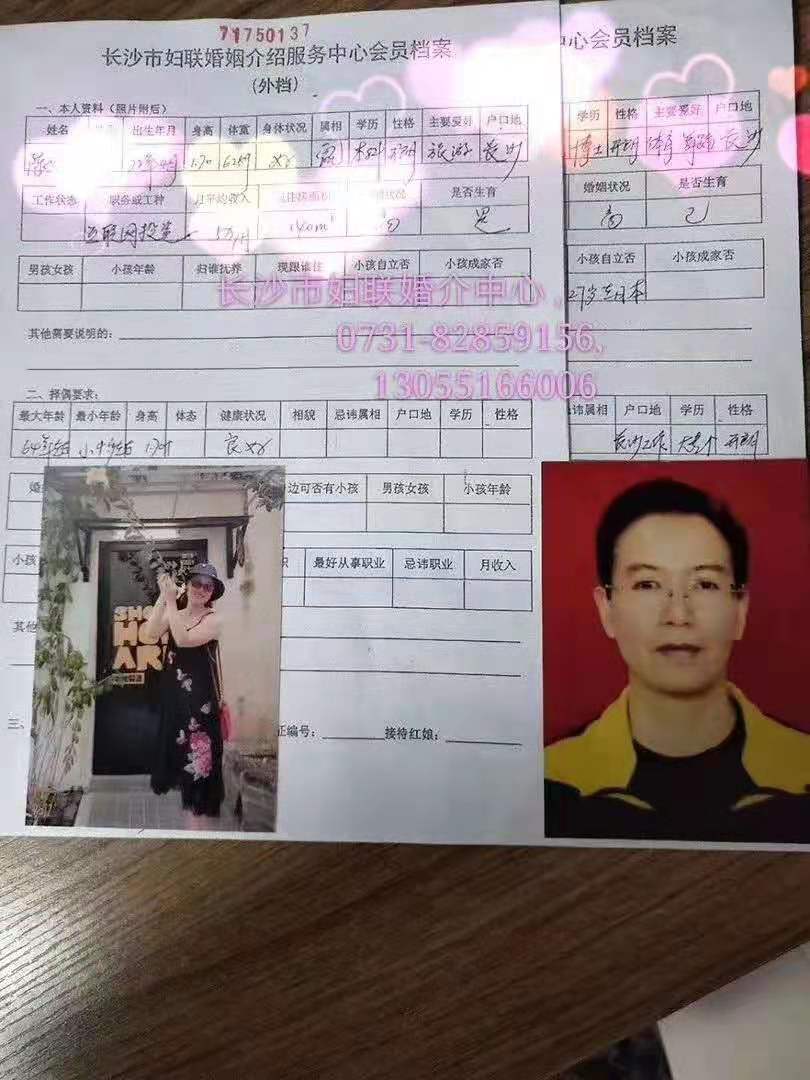 71750137
长沙市妇联婚姻介绍服务中心会员档案
(外档)
一、本人资料（照片附后）
姓名 出生年月 身高 体重 身体状况 属相 学历 性格 主要爱好 户口地
170 62kg 好 本科 开朗 旅游 长沙
工作状态 职务或工种 月平均收入 是否生育
互联网投资 5万/月 140m² 离 是
男孩女孩 小孩年龄 归谁抚养 现跟谁住 小孩自立否 小孩成家否
其他需要说明的:
二、择偶要求:
最大年龄 最小年龄 身高 体态 健康状况 相貌 忌讳属相 户口地 学历 性格
良好
边可否有小孩 男孩女孩 小孩年龄
小孩 最好从事职业 忌讳职业 月收入
其
三、
证编号: 接待红娘:
中心会员档案
学历 性格 主要爱好 户口地
博士 开朗 体育 长沙
婚姻状况 是否生育
离 已
小孩自立否 小孩成家否
27岁在日本
忌讳属相 户口地 学历 性格
长沙工作 开朗
长沙市妇联婚介中心，
0731-82859156,
13055166006